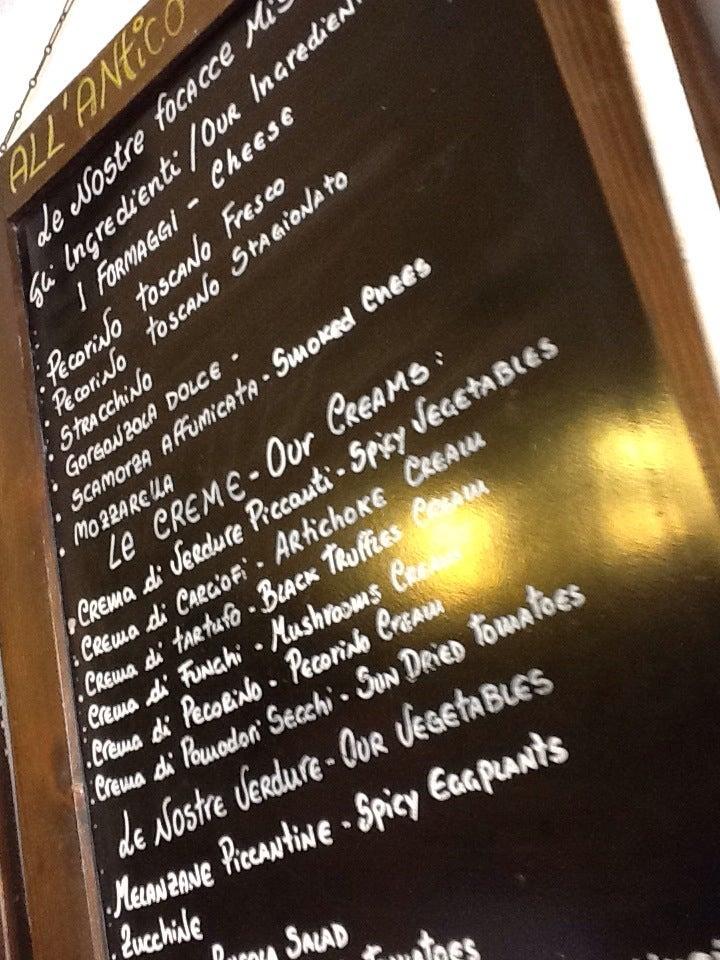 ALL'ANTiCO
Le Nostre Focacce Mis
Gli Ingredienti / Our Ingredien
I FORMAGGI - CHEESE
• Pecorino toscano Fresco
• Pecorino toscano Stagionato
• Stracchino
• Gorgonzola Dolce -
• Scamorza Affumicata - Smoked Chees
• Mozzarella
Le CREME - Our Creams:
• Crema di Verdure Piccanti - Spicy Vegetables
• Crema di Carciofi - Artichoke Cream
• Crema di tartufo - Black Truffles Cream
• Crema di Funghi - Mushrooms Cream
• Crema di Pecorino - Pecorino Cream
• Crema di Pomodori Secchi - Sun Dried tomatoes
Le Nostre Verdure - Our Vegetables
• Melanzane Piccantine - Spicy Eggplants
• Zucchine
Rucola Salad
tomatoes